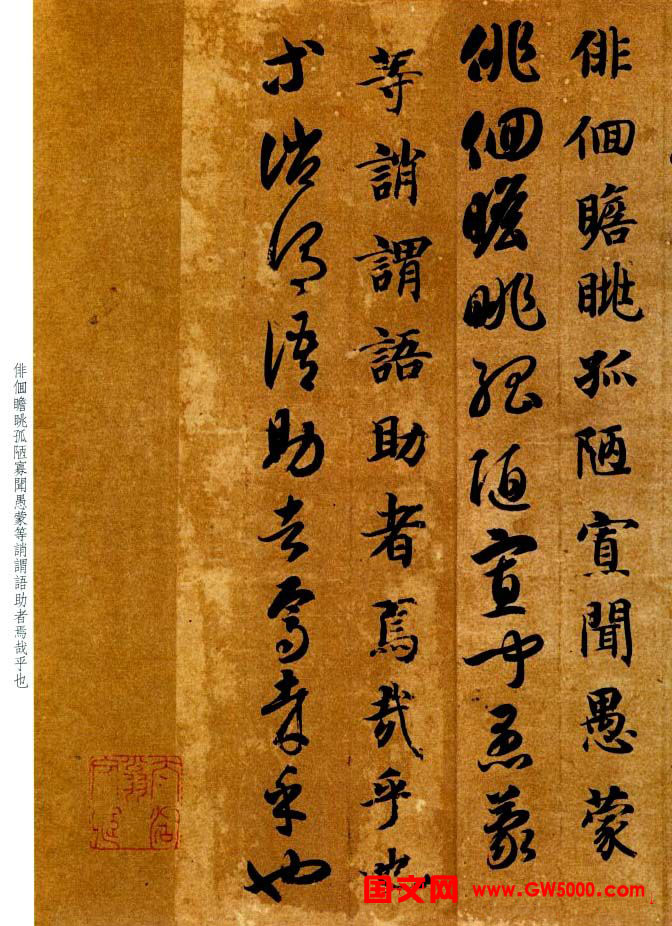 俳佪瞻眺孤陋寡聞愚蒙
俳佪瞻眺孤陋寡聞愚蒙
等誚謂語助者焉哉乎也
等誚謂語助者焉哉乎也
俳佪瞻眺孤陋寡聞愚蒙等誚謂語助者焉哉乎也
国文网 www.GW5000.com